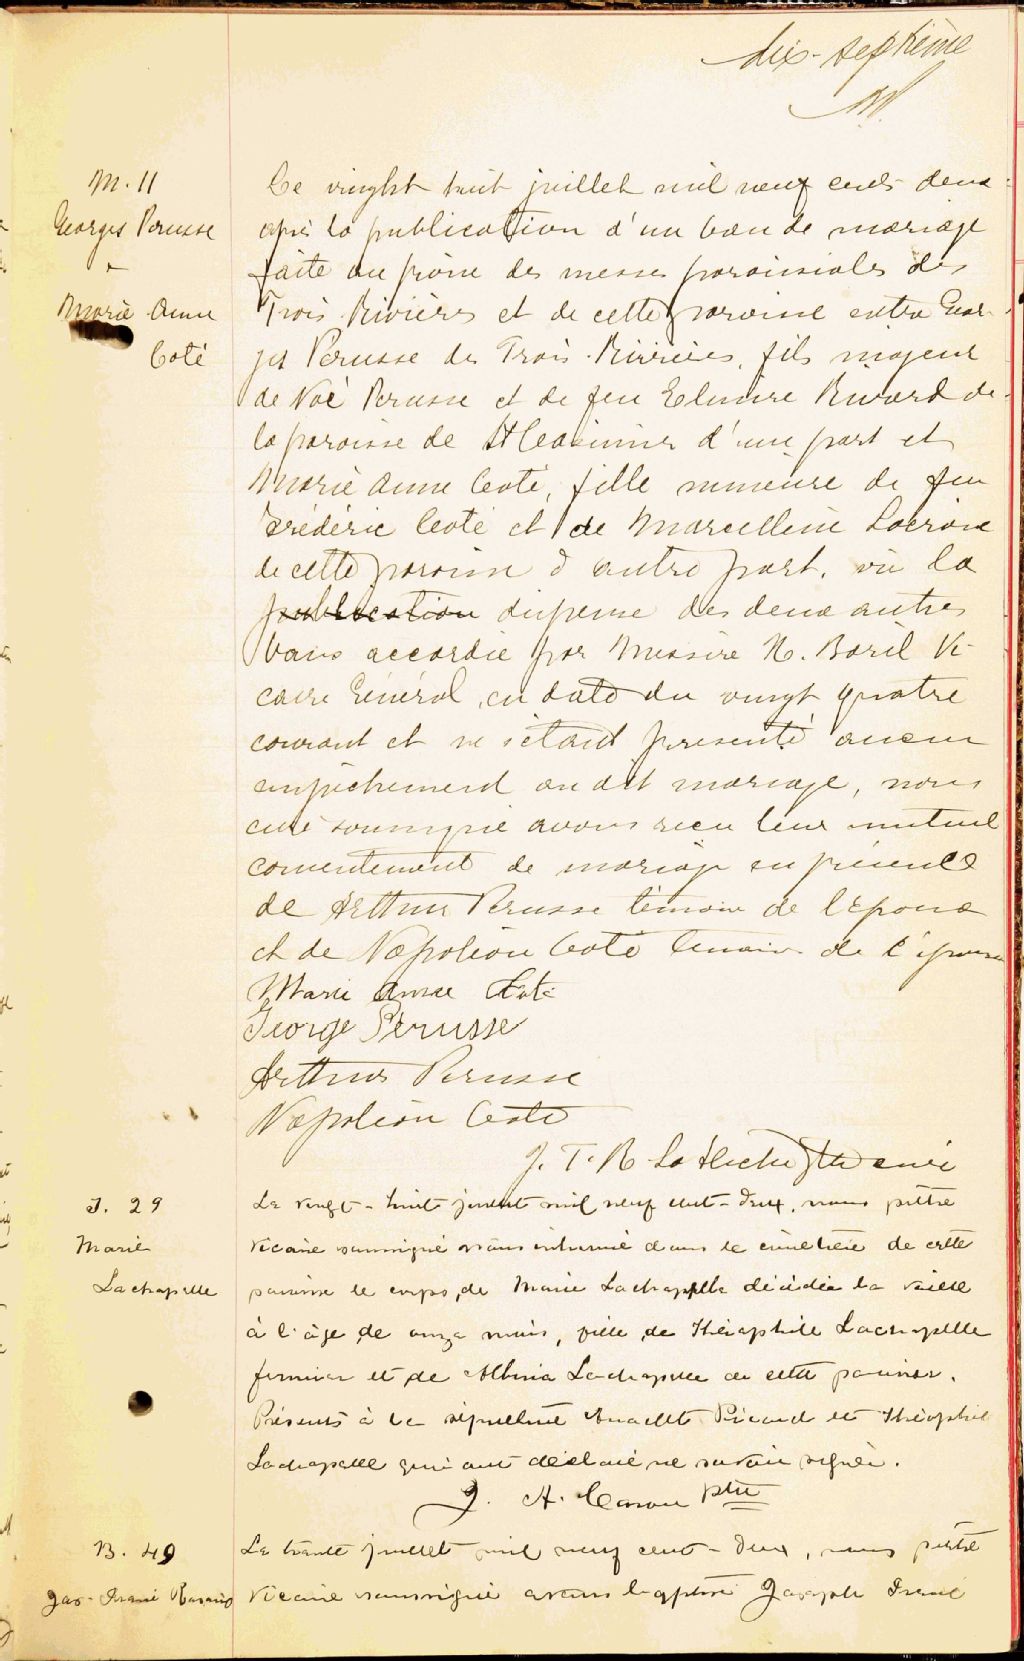 dix-septième
M. 11
Georges Perusse
Marie Anne
Coté
Ce vinght huit juillet mil neuf cents deux
après la publication d'un ban de mariage
faite au prône des messes paroissiales des
Trois Rivières et de cette paroisse entre Geor-
ges Perusse des Trois-Rivières, fils majeur
de Noé Perusse et de feu Elmire Rivard de
la paroisse de St Casimir d'une part et
Marie Anne Coté, fille mineure de feu
Frédéric Coté et de Marcelline Lacroix
de cette paroisse d'autre part, vû la
publication dispense des deux autres
bans accordée par Messire N. Baril Vi-
caire Général, en date du vingt quatre
courant et ne s'étant presenté aucun
empêchement au dit mariage, nous
curé soussigné avons reçu leur mutuel
consentement de mariage en présence
de Arthur Perusse témoin de l'époux
et de Napoléon Coté témoin de l'épouse
Marie Anne Coté
George Pérusse
Arthur Perusse
Napoléon Coté
J. T. R. Laflèche Ptre curé
S. 29
Marie
Lachapelle
Le vingt-huit juillet mil neuf cent-deux, nous prêtre
vicaire soussigné avons inhumé dans le cimetière de cette
paroisse le corps de Marie Lachapelle décédée la veille
à l'âge de onze mois, fille de Théophile Lachapelle
fermier et de Albina Lachapelle de cette paroisse.
Présents à la sépulture Anaclet Picard et Théophile
Lachapelle qui ont déclaré ne savoir signer.
J. A. Caron ptre
B. 49
Jos-
Le trente juillet mil neuf cent-deux, nous prêtre
vicaire soussigné avons baptisé Joseph